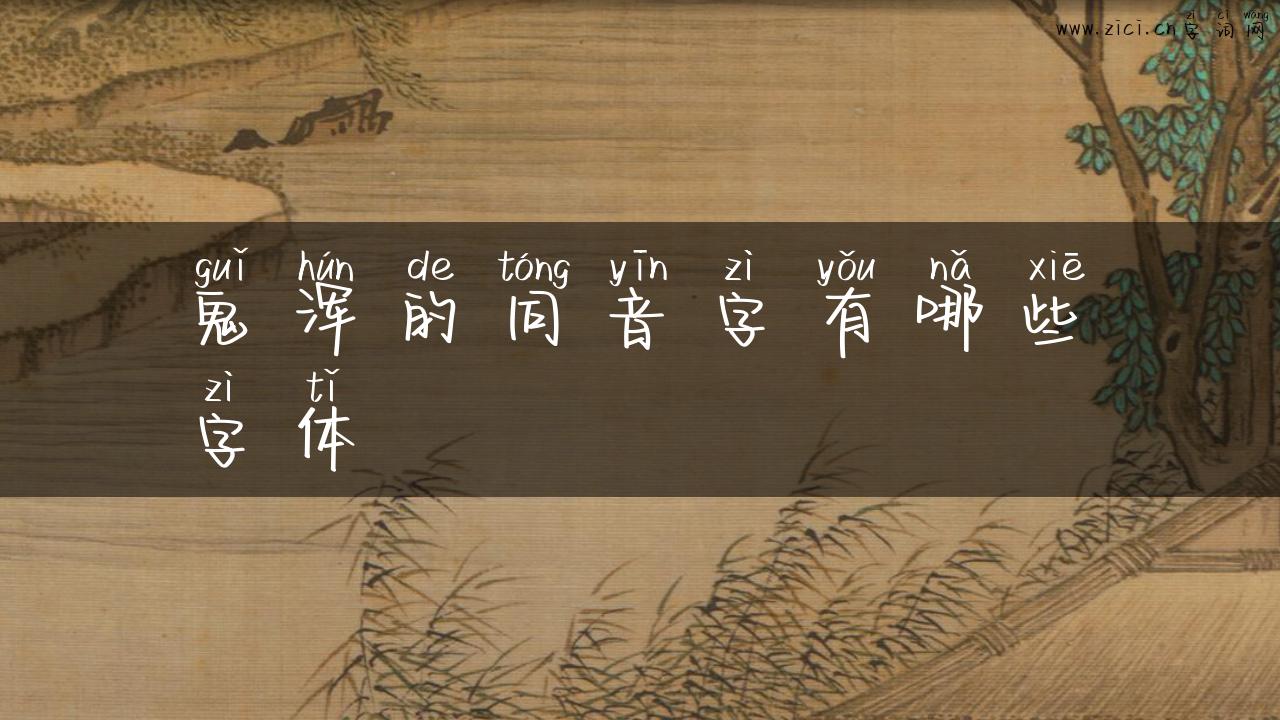 zì cí wǎng
www.zici.cn字词网
guǐ hún de tóng yīn zì yǒu nǎ xiē
鬼浑的同音字有哪些
zì tǐ
字体